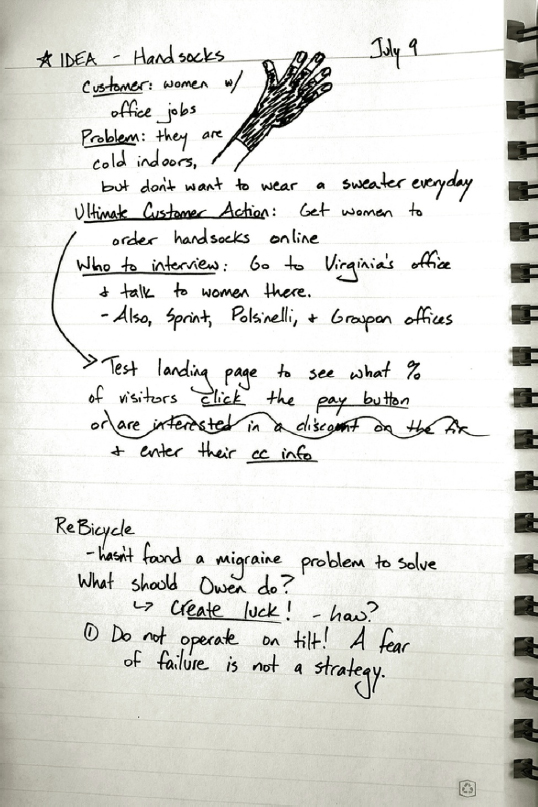 ☆ IDEA - Handsocks July 9
Customer: women w/
office jobs
Problem: they are
cold indoors,
but don't want to wear a sweater everyday
Ultimate Customer Action: Get women to
order handsocks online
Who to interview: Go to Virginia's office
+ talk to women there.
- Also, Sprint, Polsinelli, + Groupon offices
Test landing page to see what %
of visitors click the pay button
or are interested in a discount on the
+ enter their cc info
ReBicycle
- hasn't found a migraine problem to solve
What should Owen do?
↳ Create luck! - how?
① Do not operate on tilt! A fear
of failure is not a strategy.